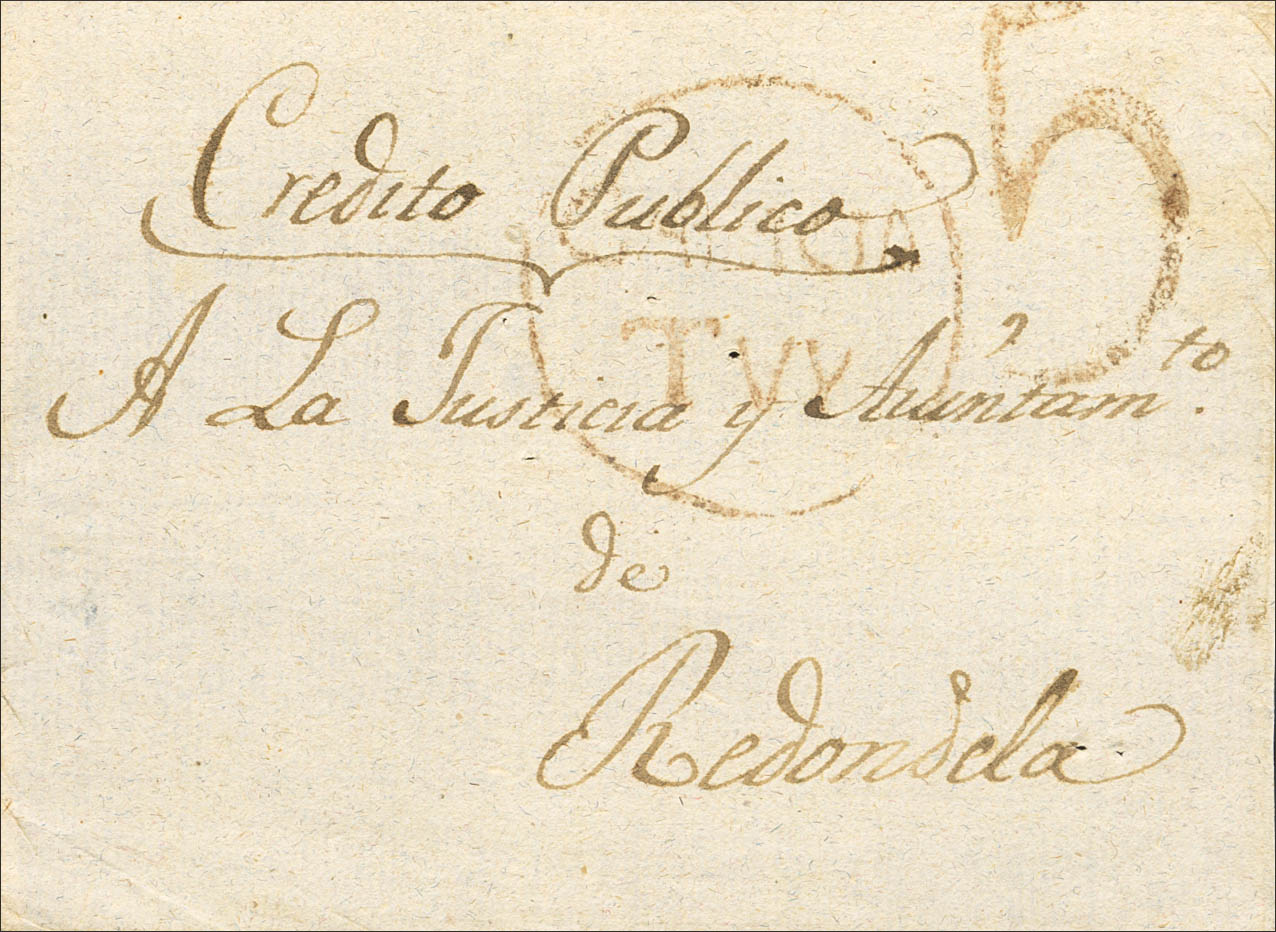 5
Credito Publico
GALICIA
TVY
A La Justicia y Aiuntam.to
de
Redondela